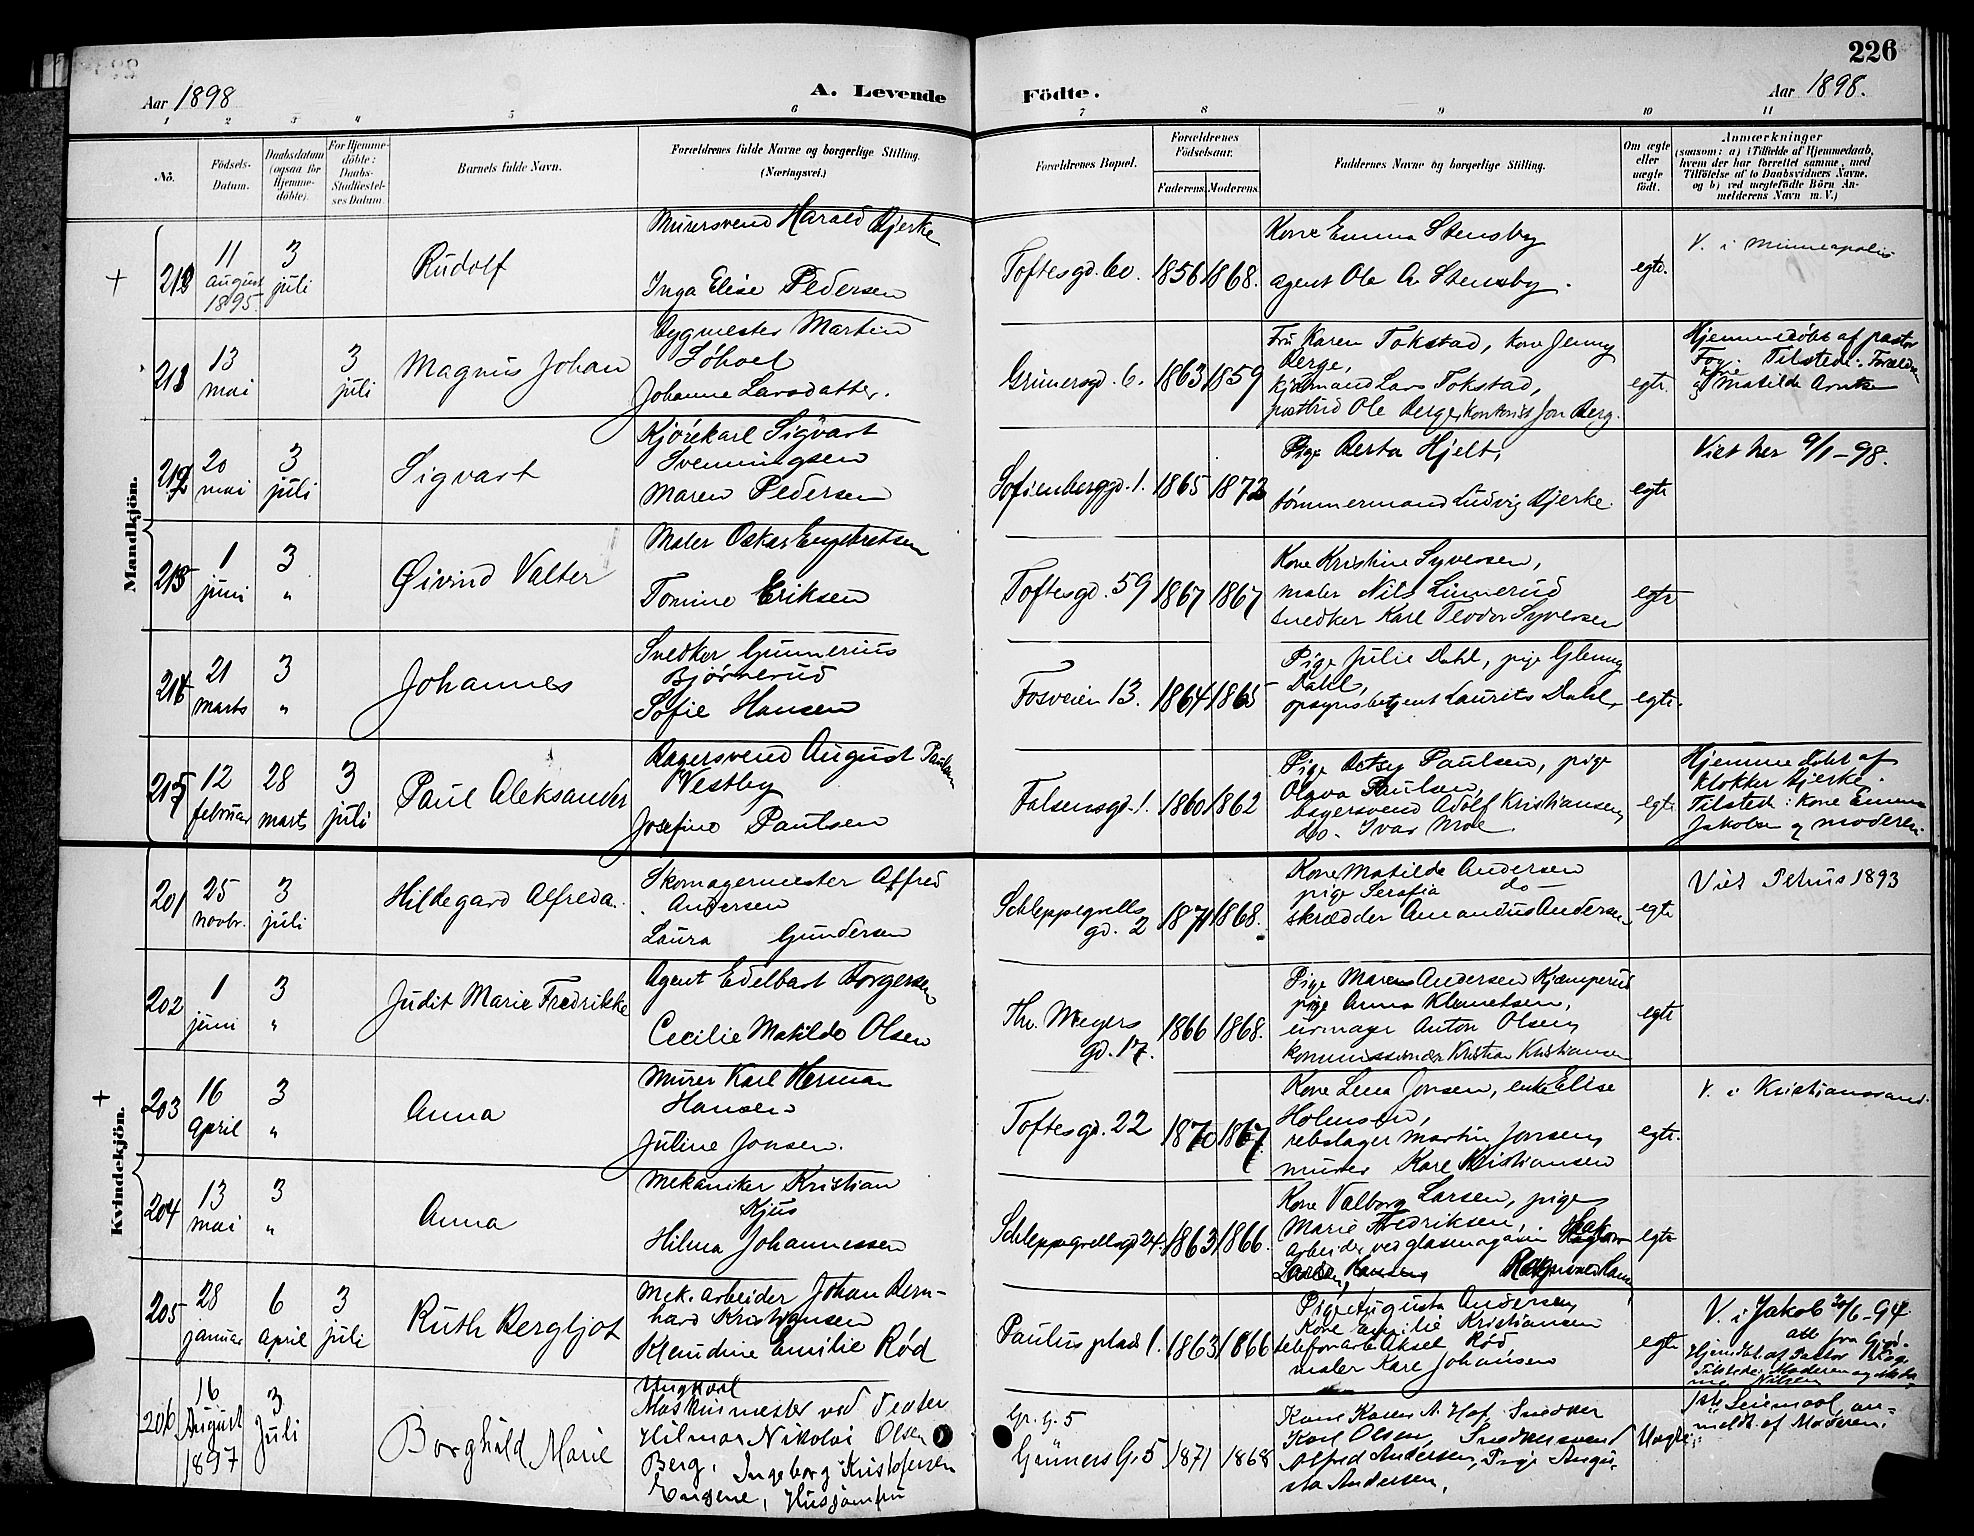 226
Aar 1898
A. Levende
Födte.
Aar 1898.
1 2 3 4 5 6 7 8 9 10 11
No.
Födsels-
Datum.
Daabsdatum
(ogsaa for
Hjemme-
döbte).
For Hjemme-
döbte:
Daabs-
Stadfæstel-
ses Datum.
Barnets fulde Navn.
Forældrenes fulde Navne og borgerlige Stilling.
(Næringsvei.)
Forældrenes Bopæl.
Forældrenes
Födselsaar.
Faderens. Moderens.
Faddernes Navne og borgerlige Stilling.
Om ægte
eller
uægte
födt.
Anmærkninger
(saasom: a) i Tilfælde af Hjemmedaab,
hvem der har forrettet samme, med
Tilföielse af to Daabsvidners Navne,
og b) ved uægtefödte Börn An-
melderens Navn m. V.)
Mandkjön.
+
11
august
1895.
3
juli
Rudolf
Murersvend Harald Bjerke
Inga Elise Pedersen
Toftesgd. 60.
1856
1868.
Kone Emma Stensby
agent Ole A. Stensby.
egte.
V. i Minneapolis
13
mai
3
juli
Magnus Johan
Bygmester Martin
Johanne Larsdatter.
Grünersgd. 6.
1863
1859
Fru Karen Tokstad, kone Jenny
Berge,
Lars Tokstad,
Ole Berge, Jon Berg.
egte.
Hjemmedöbt af pastor
Tilstede: Foræld
kone
og Matilde
20
mai
3
juli
Sigvart
Kjörekarl Sigvart
Svenningsen
Maren Pedersen
Sofienberggd. 1.
1865
1872
Pige Berta Hjelt,
tömmermand Ludvig Bjerke.
egte
Viet her 9/1-98.
1
juni
3
"
Øivind Valter
Maler Oskar Engebretsen
Tomine Eriksen
Toftesgd. 59
1867
1867
Kone Kristine Syversen,
maler Nils Linnerud
snedker Karl Teodor Syversen
egte
21
marts
3
"
Johannes
Snedker Gunnerius
Bjørnerud
Sofie Hansen
Fosveien 13.
1864
1865
Pige Julie Dahl, pige
Dahl,
opsynsbetjent Laurits Dahl,
egte.
215
12
februar
28
marts
3
juli
Paul Aleksander
Bagersvend August Paulsen
Vestby
Josefine Paulsen
Falsensgd. 1.
1860
1862
Pige Betsey Paulsen, pige
Olava Paulsen,
bagersvend Adolf Kristiansen,
do. Ivar Moe.
egte
Hjemmedöbt af
klokker Bjerke.
Tilsted: kone Emma
Jakobsen og moderen.
Kvindekjön.
201
25
novbr.
3
juli
Hildegard Alfreda.
Skomagermester Alfred
Andersen
Laura Gundersen
Schleppegrells
gd. 2
1871
1868.
Kone Matilde Andersen
pige Serafia do
skrædder Amandus Andersen
egte
Viet Petrus 1893
202
1
juni
3
"
Judit Marie Fredrikke
Agent Edelbart Borgersen
Cecilie Matilde Olsen
Th. Meyers
gd. 17.
1866
1868.
Pige Maren Andersen Kjæmperud
pige Anna Klemetsen,
urmager Anton Olsen,
kommissionær Kristian Kristiansen
egte
+
203
16
April
3
"
Anna
Murer Karl Herman
Hansen
Juline Jonsen.
Toftesgd. 22
1870
1867.
Kone Lena Jonsen, enke Elise
Holmsen,
rebslager Martin Jonsen,
murer Karl Kristiansen
egte.
V. i Kristianssand.
204
13
mai
3
"
Anna
Mekaniker Kristian
Kjus
Hilma Johannessen
Schleppegrellsgd 24.
1863
1866.
Kone Valborg Larsen, pige
Marie Fredriksen,
arbeider ved glasmagasin
egte
205
28
januar
6
april
3
juli
Ruth Bergljot
Mek. arbeider Johan Bern-
hard Kristiansen
Klaudine Emilie Rød
Paulus plads 1.
1863
1866
Pige Augusta Andersen,
Kone Emilie Kristiansen
telefonarb. Aksel Rød,
maler Karl Johansen
egte
V. i Jakob 20/6-94
Hjemdöbt af Pastor
Tilstede: Moderen og
Nilsen
206
16
August
1897
3
Juli
Borghild Marie
Ungkarl
Maskinmester ved Teater
Hilmar Nikolai Olsen
Berg, Ingeborg Kristofersen
Husjomfru
Gr. G. 5
Grüners G. 5
1871
1868
Kone Karen A. Hof, Snedker
Karl Olsen, Snedkersvend
Alfred Andersen, Pige Augu-
sta Andersen,
Uægte
1ste Leiermaal, an-
meldt af Moderen.